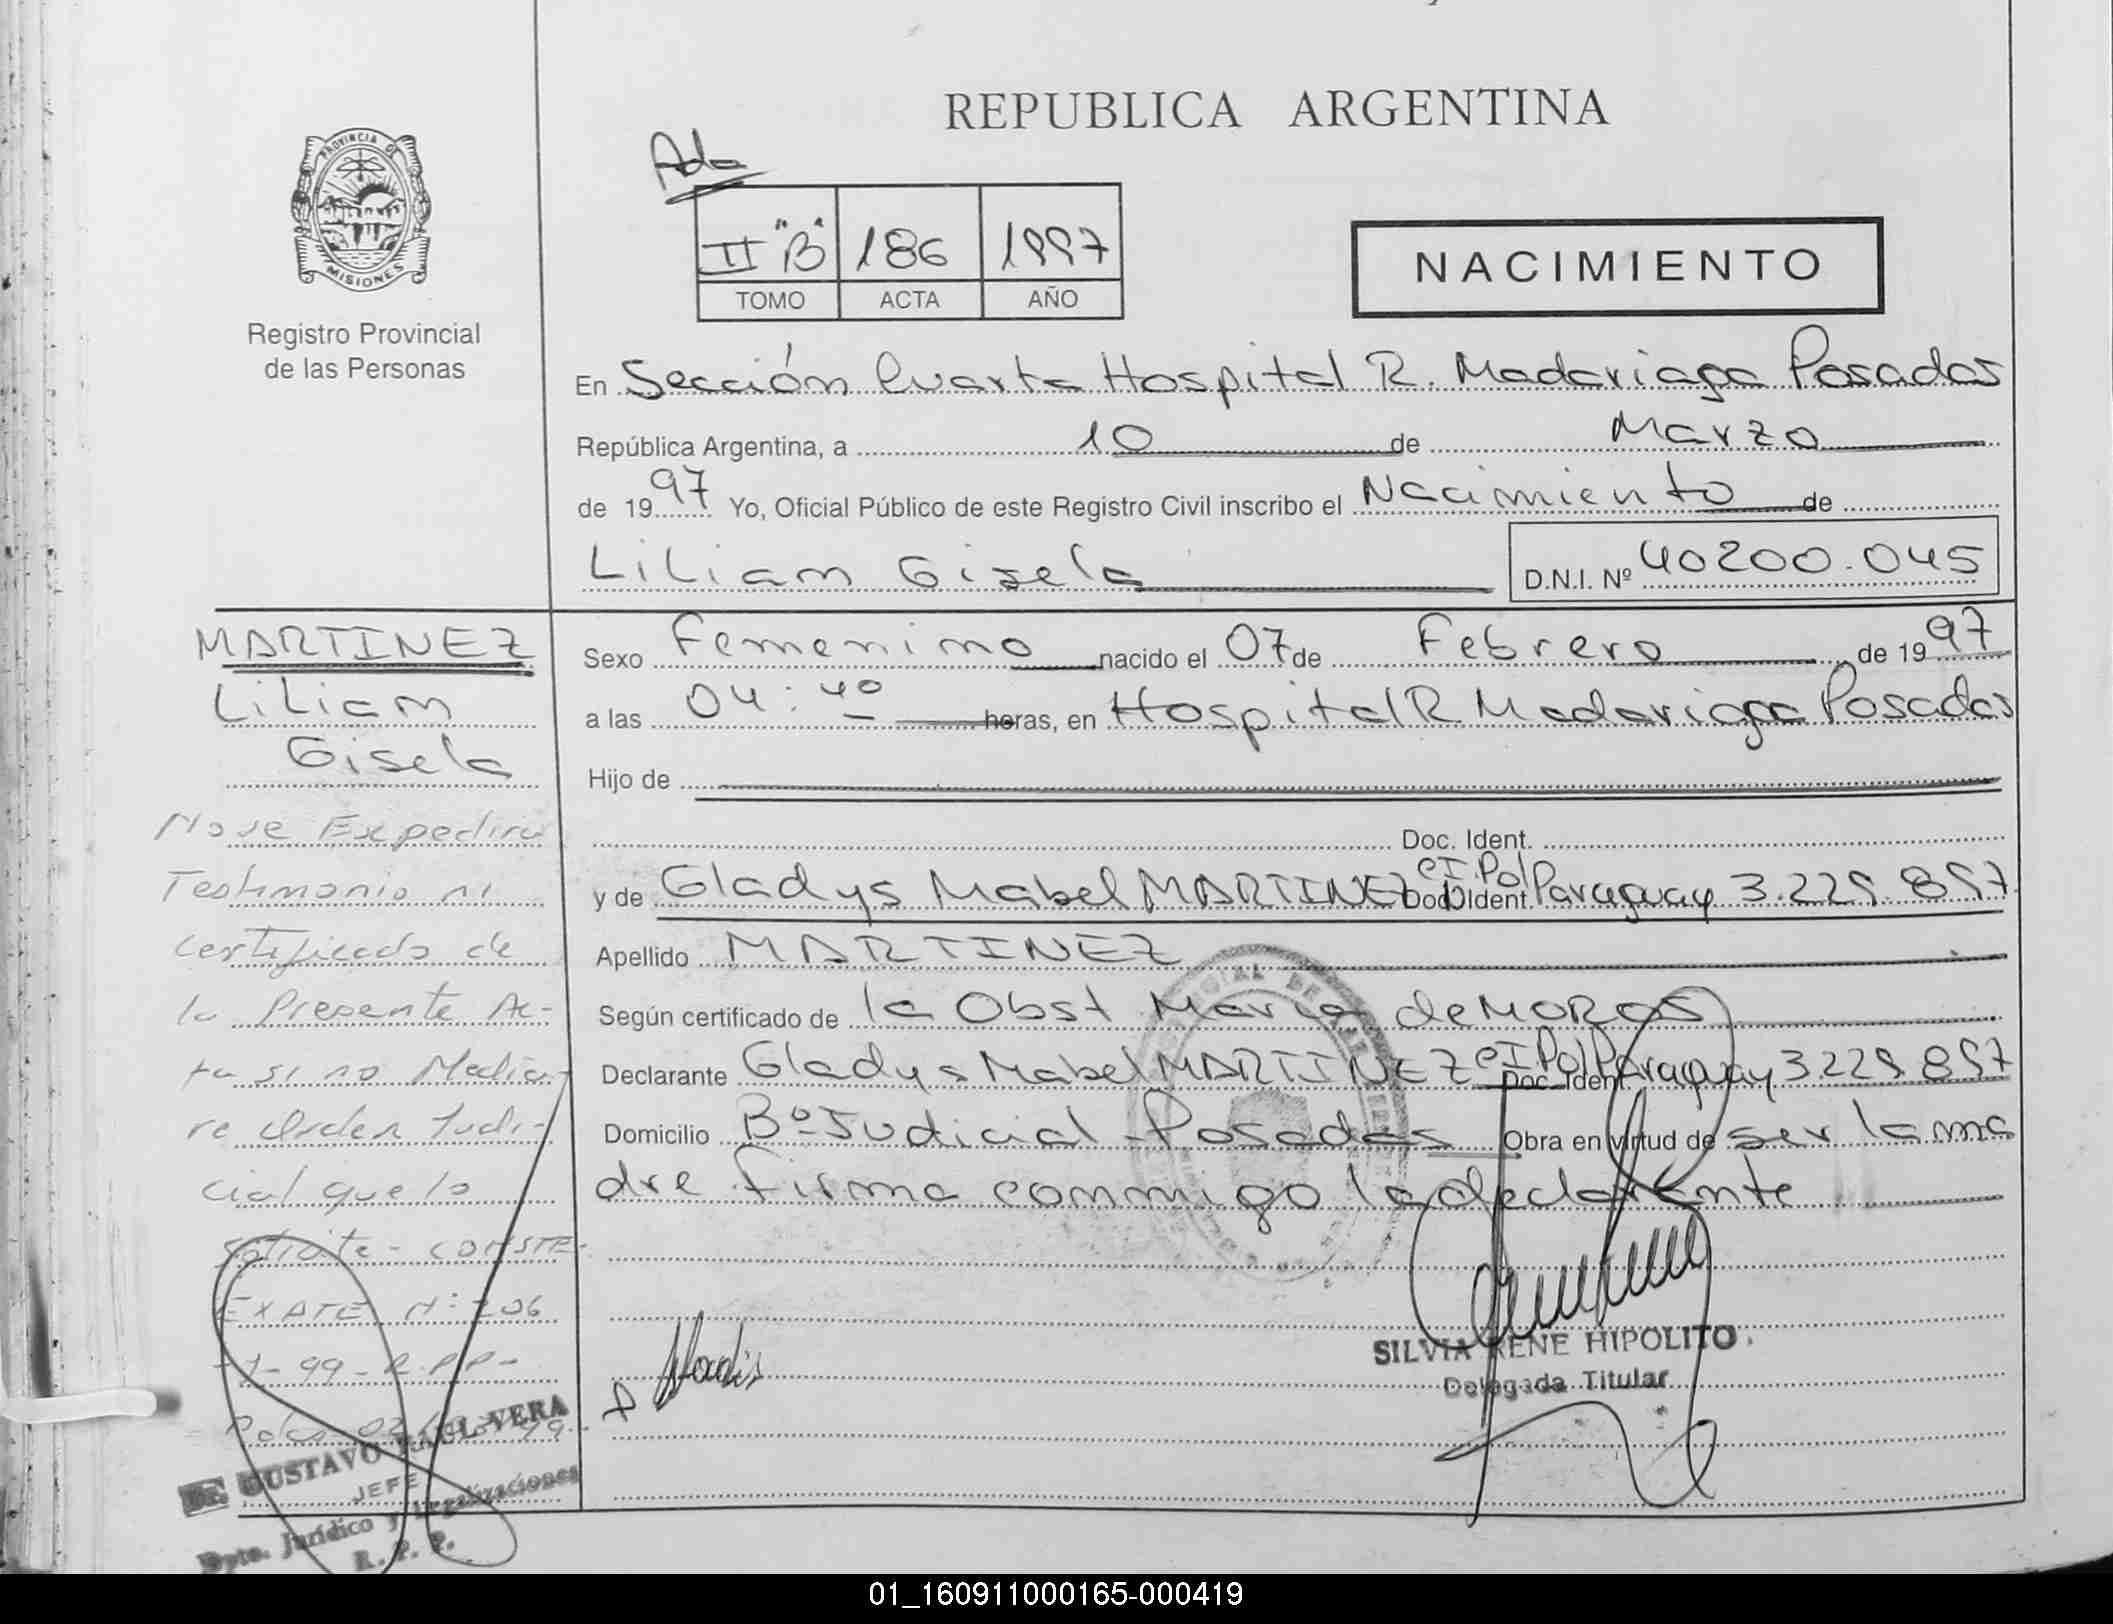 REPUBLICA ARGENTINA
PROVINCIA DE
MISIONES
Registro Provincial
de las Personas
Ado
II "B" 186 1997
TOMO ACTA AÑO
NACIMIENTO
En Sección Cuarta Hospital R. Madariaga Posadas
República Argentina, a 10 de Marzo
de 1997 Yo, Oficial Público de este Registro Civil inscribo el Nacimiento de
Liliam Gisela D.N.I. Nº 40200.045
MARTINEZ
Liliam
Gisela
No se Expedira
Testimonio ni
Certificado de
la Presente Ac-
ta si no Media
re Orden Judi-
cial que lo
Solicite - CONSTE-
EXPTE Nº 206
99 - R.P.P-
Dr. GUSTAVO VERA
JEFE
Dpto. Jurídico y Legalizaciones
R. P. P.
Sexo Femenino nacido el 07 de Febrero de 1997
a las 04:40 horas, en Hospital R Madariaga Posadas
Hijo de
Doc. Ident.
y de Gladys Mabel MARTINEZ Doc. Ident. CI.Pol Paraguay 3.229.897
Apellido MARTINEZ
Según certificado de la Obst Maria de MOROS
Declarante Gladys Mabel MARTINEZ Doc. Ident. CI Pol Paraguay 3.229.897
Domicilio Bº Judicial - Posadas Obra en virtud de ser la ma
dre firma conmigo la declarante
SILVIA RENE HIPOLITO
Delegada Titular
01_160911000165-000419